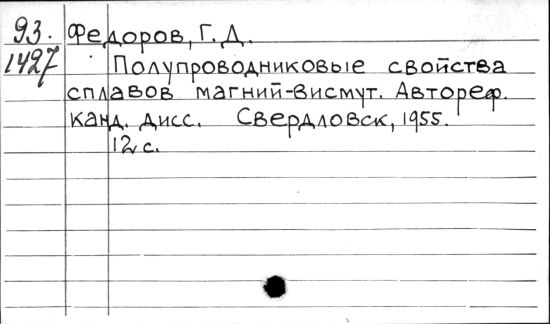 93. Федоров, Г. Д.
1427 Полупроводниковые свойства
сплавов магний-висмут. Автореф.
канд. дисс. Свердловск, 1955.
12 с.